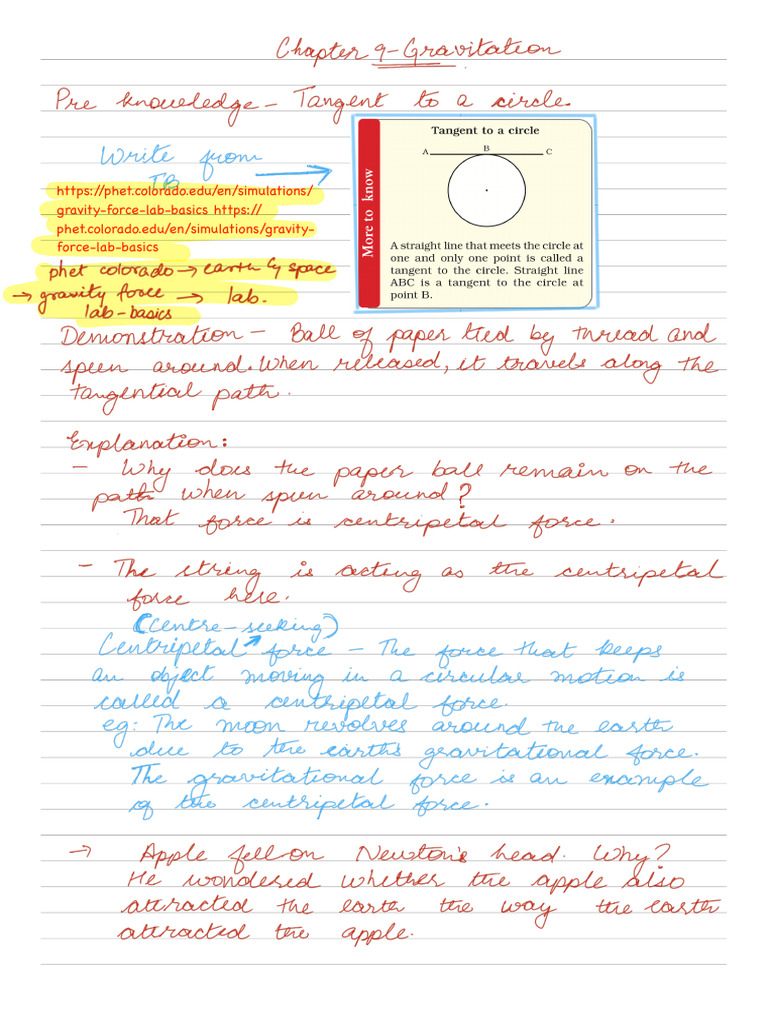 Chapter 9-Gravitation
Pre knowledge - Tangent to a circle.
Write from
TB
Tangent to a circle
A B C
More to know
A straight line that meets the circle at
one and only one point is called a
tangent to the circle. Straight line
ABC is a tangent to the circle at
point B.
https://phet.colorado.edu/en/simulations/
gravity-force-lab-basics https://
phet.colorado.edu/en/simulations/gravity-
force-lab-basics
phet colorado → earth & space
→ gravity force → lab.
lab-basics
Demonstration - Ball of paper tied by thread and
spun around. When released, it travels along the
tangential path.
Explanation:
- Why does the paper ball remain on the
path when spun around?
That force is centripetal force.
- The string is acting as the centripetal
force here.
(Centre-seeking)
Centripetal force - The force that keeps
an object moving in a circular motion is
called a centripetal force.
eg: The moon revolves around the earth
due to the earths gravitational force.
The gravitational force is an example
of the centripetal force.
→ Apple fell on Newton's head. Why?
He wondered whether the apple also
attracted the earth the way the earth
attracted the apple.